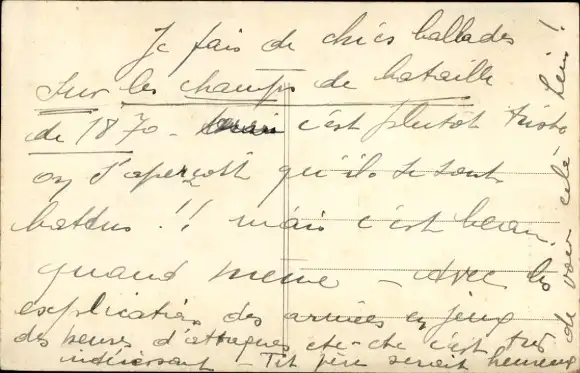 Je fais de chics ballades
sur les champs de bataille
de 1870 - c'est plutôt triste
on s'aperçoit qu'ils se sont
battus !! mais c'est beau
quand même - Avec les
explications des armées en jeux
des heures d'attaques etc-etc c'est très
intéressant - Tit père serait heureux
de voir cela hein !